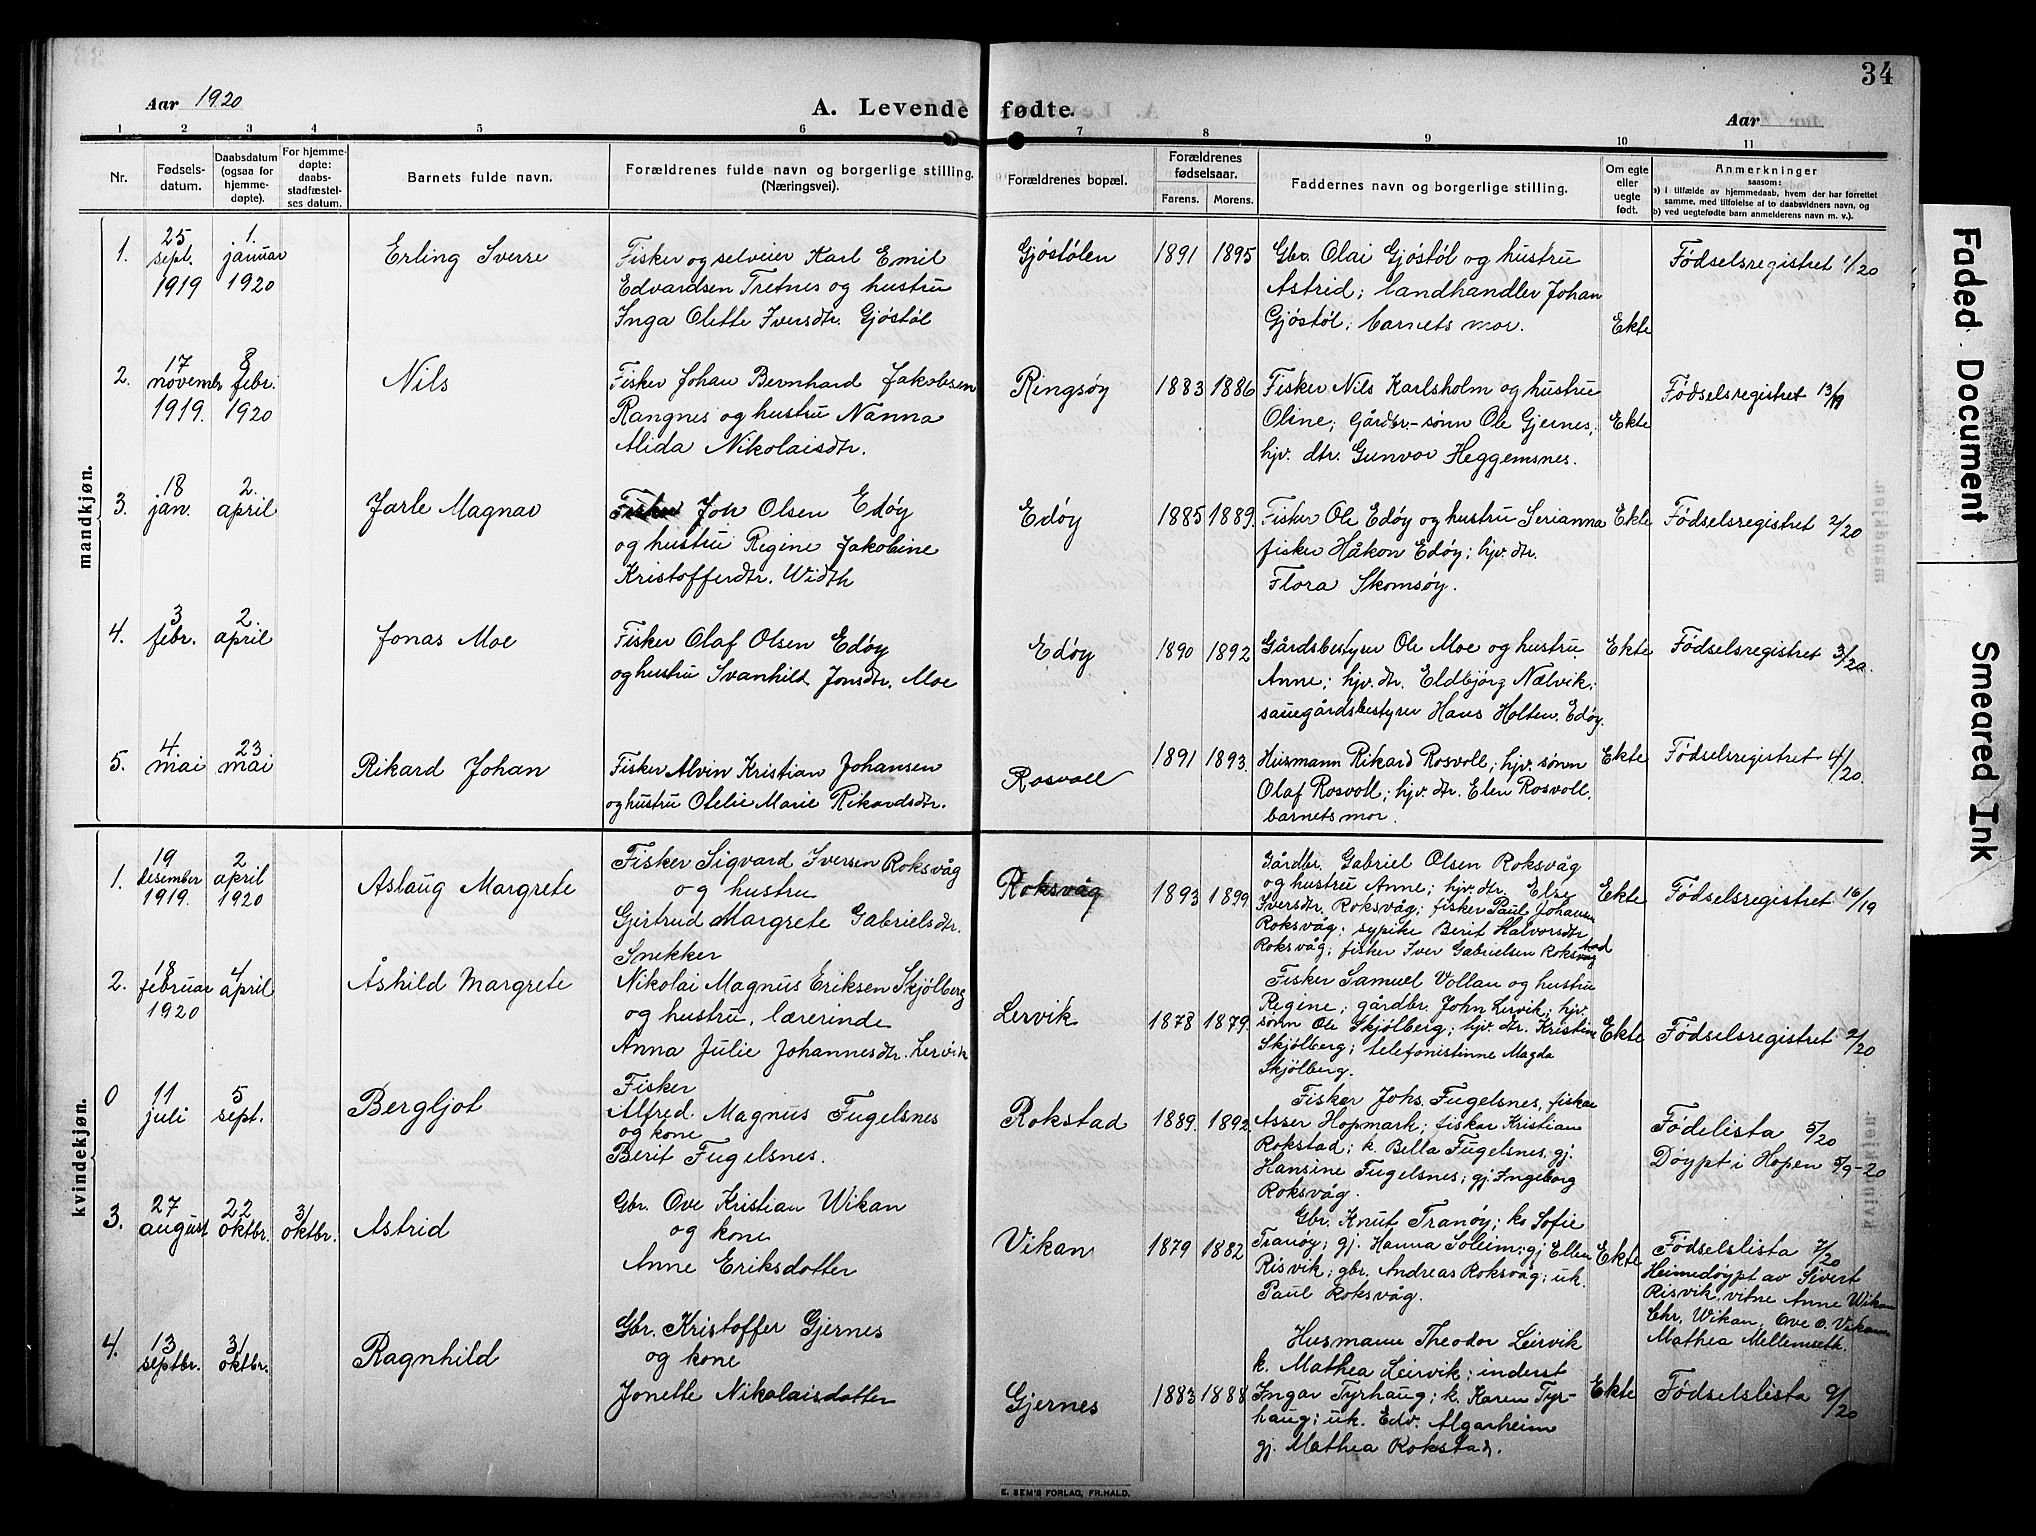 34
Aar 1920
A. Levende fødte.
Aar
1 2 3 4 5 6 7 8 9 10 11
Nr.
Fødsels-
datum.
Daabsdatum
(ogsaa for
hjemme-
døpte).
For hjemme-
døpte:
daabs-
stadfæstel-
ses datum.
Barnets fulde navn.
Forældrenes fulde navn og borgerlige stilling.
(Næringsvei).
Forældrenes bopæl.
Forældrenes
fødselsaar.
Farens. Morens.
Faddernes navn og borgerlige stilling.
Om egte
eller
uegte
født.
Anmerkninger
saasom:
a) i tilfælde av hjemmedaab, hvem der har forrettet
samme, med tilføielse af to daabsvidners navn, og
b) ved uegtefødte barn anmelderens navn m. v.).
mandkjøn.
1.
25
sept.
1919
1.
januar
1920
Erling Sverre
Fisker og selveier Karl Emil
Edvardsen Tretnes og hustru
Inga Olette Iversdtr. Gjøstøl
Gjøstølen
1891 1895
Gbr. Olai Gjøstøl og hustru
Astrid; landhandler Johan
Gjøstøl; barnets mor.
Ekte
Fødselsregistret 1/20
2.
17
novembr
1919.
8
febr.
1920
Nils
Fisker Johan Bernhard Jakobsen
Rangnes og hustru Nanna
Alida Nikolaisdtr.
Ringsøy
1883 1886
Fisker Nils Karlsholm og hustru
Oline; Gårdbr.-sønn Ole Gjernes;
hjv. dtr. Gunvor Heggemsnes.
Ekte
Fødselsregistret 13/19
3.
18
jan.
2.
april
Jarle Magnar
Fisker Joh Olsen Edøy
og hustru Regine Jakobine
Kristofferdtr. Width
Edøy
1885 1889.
Fisker Ole Edøy og hustru Serianna
fisker Håkon Edøy; hjv. dtr.
Flora Skomsøy.
Ekte
Fødselsregistret 2/20
4.
3
febr.
2.
april
Jonas Moe
Fisker Olaf Olsen Edøy
og hustru Svanhild Jonsdtr. Moe
Edøy
1890 1892
Gårdsbestyrer Ole Moe og hustru
Anne; hjv. dtr. Eldbjørg Nælvik;
sauegårdsbestyrer Hans Holten, Edøy.
Ekte
Fødselsregistret 3/20.
5.
4
mai
23
mai
Rikard Johan
Fisker Alvin Kristian Johansen
og hustru Otelie Marie Rikardsdtr.
Rosvoll
1891 1893.
Husmann Rikard Rosvoll; hjv. sønn
Olaf Rosvoll; hjv. dtr. Elen Rosvoll,
barnets mor.
Ekte
Fødselsregistret 4/20.
kvindekjøn.
1.
19
desember
1919.
2
april
1920
Aslaug Margrete
Fisker Sigvard Iversen Roksvåg
og hustru
Gjertrud Margrete Gabrielsdtr.
Roksvåg
1893 1899
Gårdbr. Gabriel Olsen Roksvåg
og hustru Anne; hjv. dtr. Else
Iversdtr. Roksvåg; fisker Paul Johansen
Roksvåg; sypike Berit Halvorsdtr
Roksvåg; fisker Iver Gabrielsen Rokstad
Ekte
Fødselsregistret 16/19
2.
18
februar
1920
4
april
Åshild Margrete
Snekker
Nikolai Magnus Eriksen Skjølberg
og hustru, lærerinde
Anna Julie Johannesdtr. Lervik
Lervik
1878 1879.
Fisker Samuel Vollan og hustru
Regine; gårdbr. John Lervik; hjv.
sønn Ole Skjølberg; hjv. dtr. Kristine
Skjølberg; telefonistinne Magda
Skjølberg.
Ekte
Fødselsregistret 2/20
0
11
juli
5
sept.
Bergljot
Fisker
Alfred Magnus Fugelsnes
og kone
Berit Fugelsnes.
Rokstad
1889. 1892
Fisker Johs. Fugelsnes, fiskar
Asser Hopmark; fiskar Kristian
Rokstad; k. Bella Fugelsnes, gj.
Hansine Fugelsnes; gj. Ingeborg
Roksvåg.
Fødelista 5/20
Døypt i Hopen 5/9-20
3.
27
august
22
oktbr.
31
oktbr.
Astrid
Gbr. Ove Kristian Wikan
og kone
Anne Eriksdotter
Vikan
1879 1882
Gbr. Knut Tranøy; ko Sofie
Tranøy; gj. Hanna Soleim; gj Ellen
Risvik; gbr. Andreas Roksvåg; uk.
Paul Roksvåg.
Ekte
Fødselslista 7/20
Heimedøypt av Sivert
Risvik, vitne Anne Wikan
Chr. Wikan, Ove O. Vikan
Mathea Mellemseth.
4.
13
septbr.
31
oktbr.
Ragnhild
Gbr. Kristoffer Gjernes
og kone
Jonette Nikolaisdotter
Gjernes
1883 1888
Husmann Theodor Leirvik
k. Mathea Leirvik; inderst
Ingar Tyrhaug; k. Karen Tyr-
haug; uk. Edv. Algarheim
gj. Mathea Rokstad.
Ekte
Fødselslista 9/20
E. SEM'S FORLAG, FR.HALD.
Faded Document
Smeared Ink